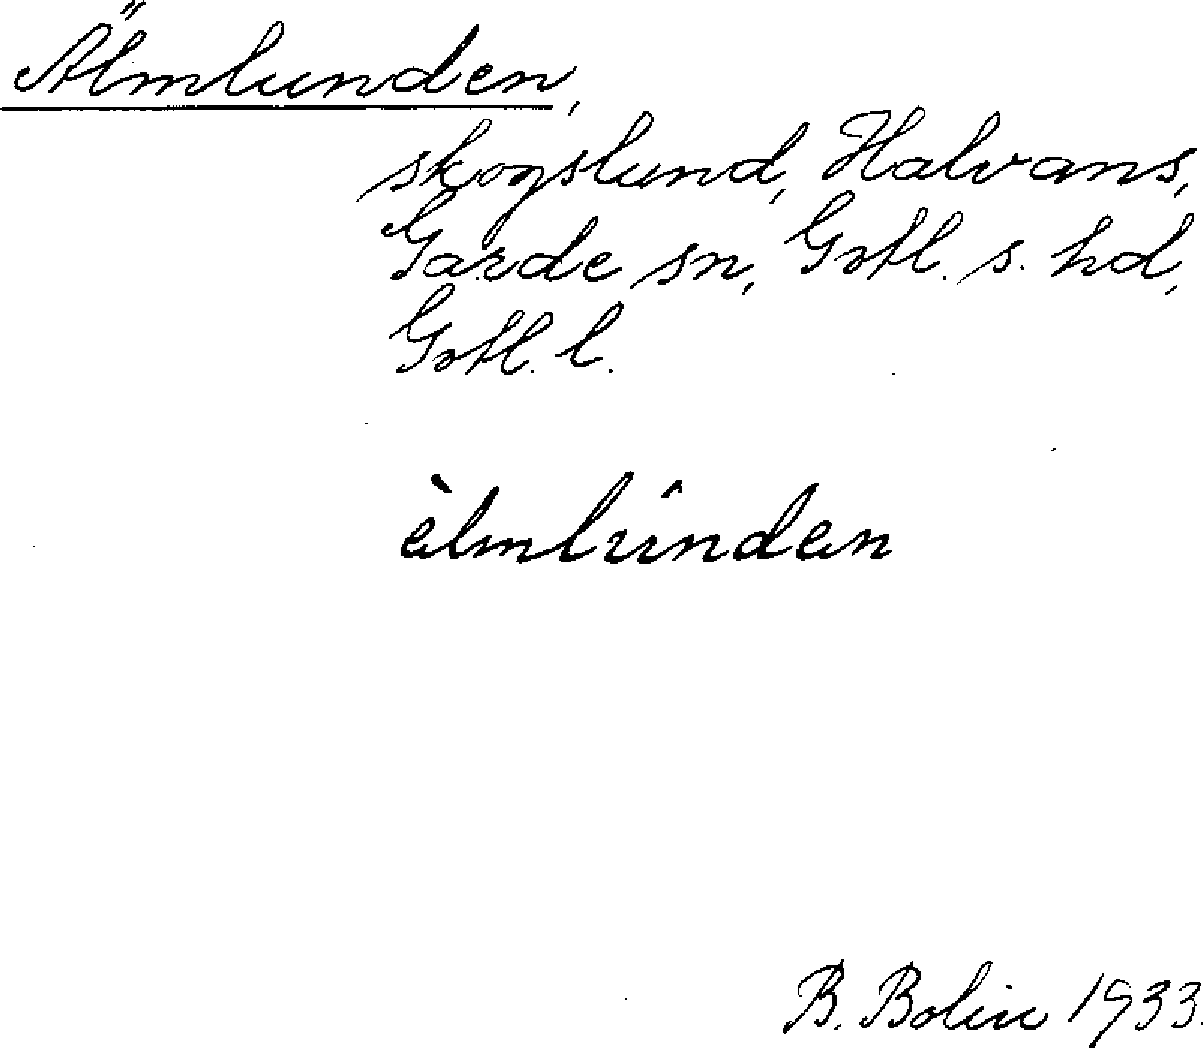 Älmlunden,
skogslund, Halvans,
Garde sn, Gotl. s. hd,
Gotl. l.
älmlûnden
B. Bolin 1933.